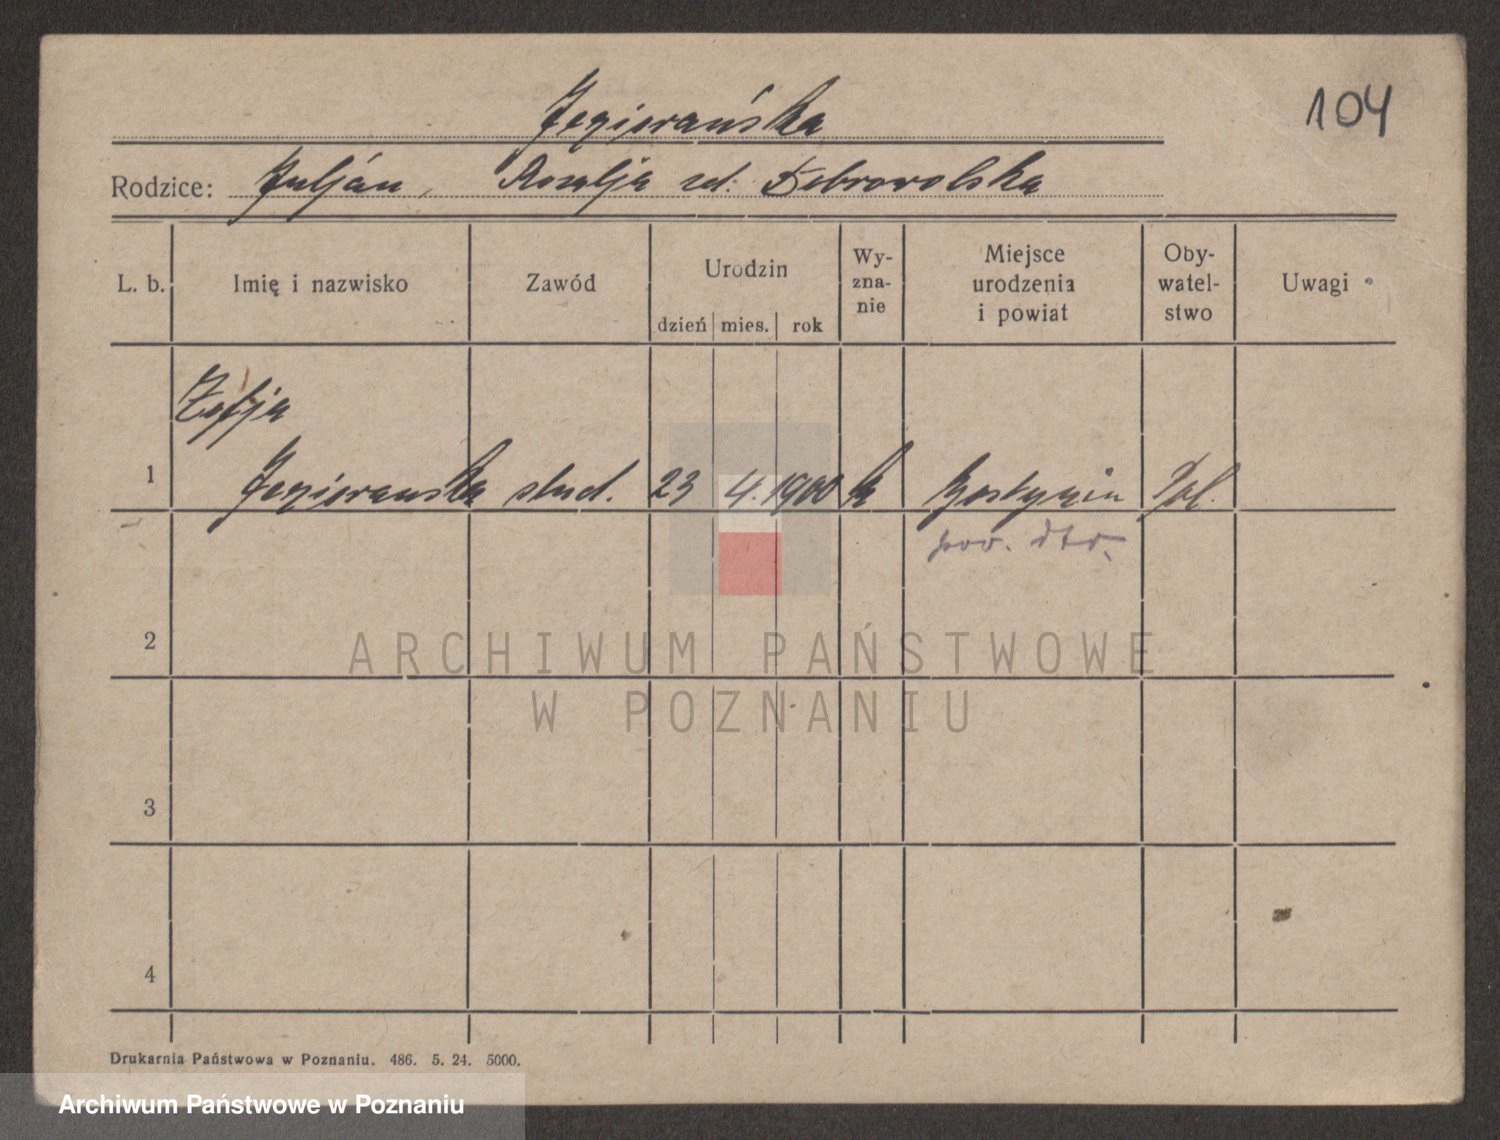 104
Jezierańska
Rodzice: Juljan, Rozalja zd. Dobrowolska
L. b. Imię i nazwisko Zawód Urodzin dzień mies. rok Wy-zna-nie Miejsce urodzenia i powiat Oby-watel-stwo Uwagi
Zofja
1 Jezierańska stud. 23 4. 1900 k Gostynin Pol.
pow. dto.
2
ARCHIWUM PAŃSTWOWE
W POZNANIU
3
4
Drukarnia Państwowa w Poznaniu. 486. 5. 24. 5000.
Archiwum Państwowe w Poznaniu